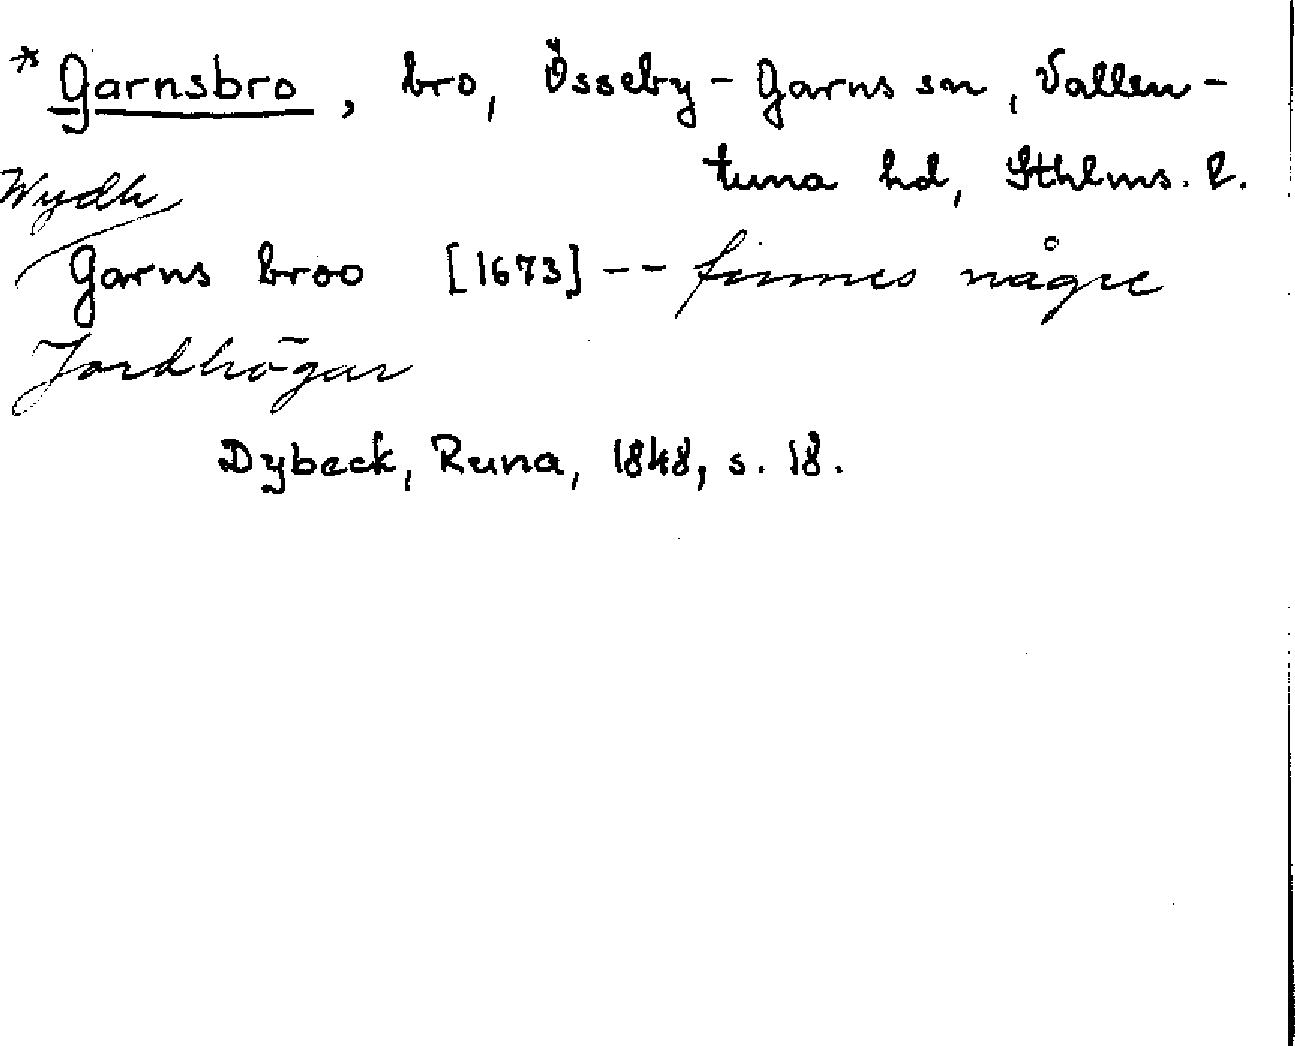 * Garnsbro, bro, Össeby-Garns sn, Vallen-
tuna hd, Sthlms. l.
Wydh
Garns broo [1673] -- finnes någre
Jordhögar
Dybeck, Runa, 1848, s. 18.